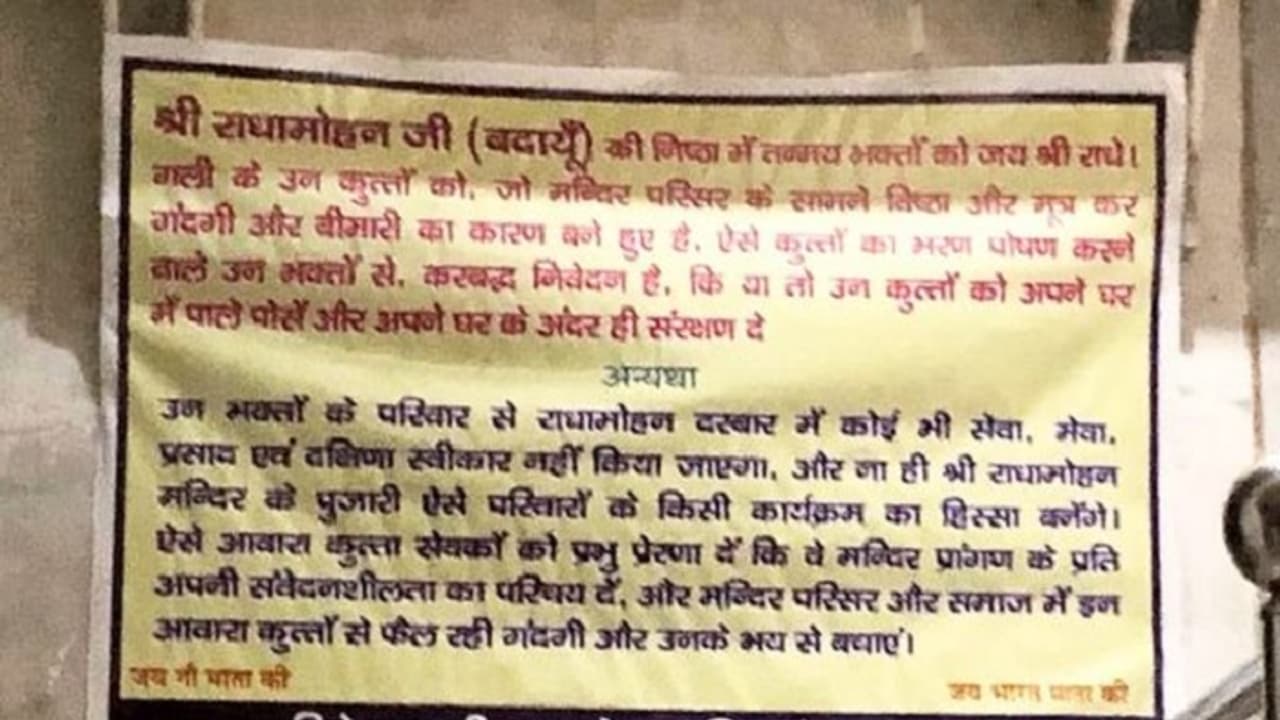 श्री राधामोहन जी (बदायूँ) की निष्ठा में तन्मय भक्तों को जय श्री राधे।
गली के उन कुत्तों को, जो मन्दिर परिसर के सामने विष्ठा और मूत्र कर
गंदगी और बीमारी का कारण बने हुए है, ऐसे कुत्तों का भरण पोषण करने
वाले उन भक्तों से, करबद्ध निवेदन है, कि या तो उन कुत्तों को अपने घर
में पाले पोसें और अपने घर के अंदर ही संरक्षण दे
अन्यथा
उन भक्तों के परिवार से राधामोहन दरबार में कोई भी सेवा, मेवा,
प्रसाद एवं दक्षिणा स्वीकार नहीं किया जाएगा, और ना ही श्री राधामोहन
मन्दिर के पुजारी ऐसे परिवारों के किसी कार्यक्रम का हिस्सा बनेंगे।
ऐसे आवारा कुत्ता सेवकों को प्रभु प्रेरणा दें कि वे मन्दिर प्रांगण के प्रति
अपनी संवेदनशीलता का परिचय दें, और मन्दिर परिसर और समाज में इन
आवारा कुत्तों से फैल रही गंदगी और उनके भय से बचाएं।
जय गौ माता की
जय भारत माता की